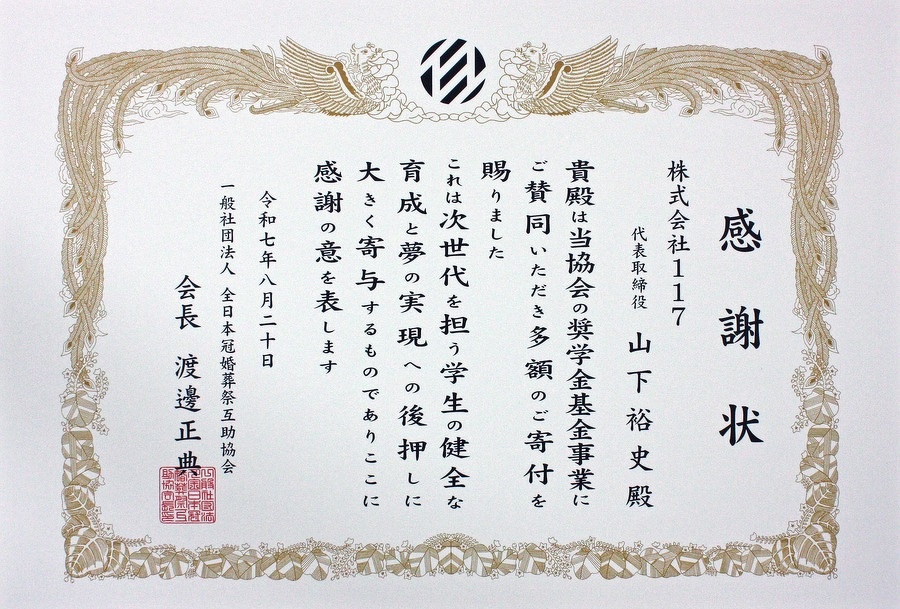 感謝状
株式会社117
代表取締役 山下裕史殿
貴殿は当協会の奨学金基金事業に
ご賛同いただき多額のご寄付を
賜りました
これは次世代を担う学生の健全な
育成と夢の実現への後押しに
大きく寄与するものでありここに
感謝の意を表します
令和七年八月二十日
一般社団法人 全日本冠婚葬祭互助協会
会長 渡邊正典